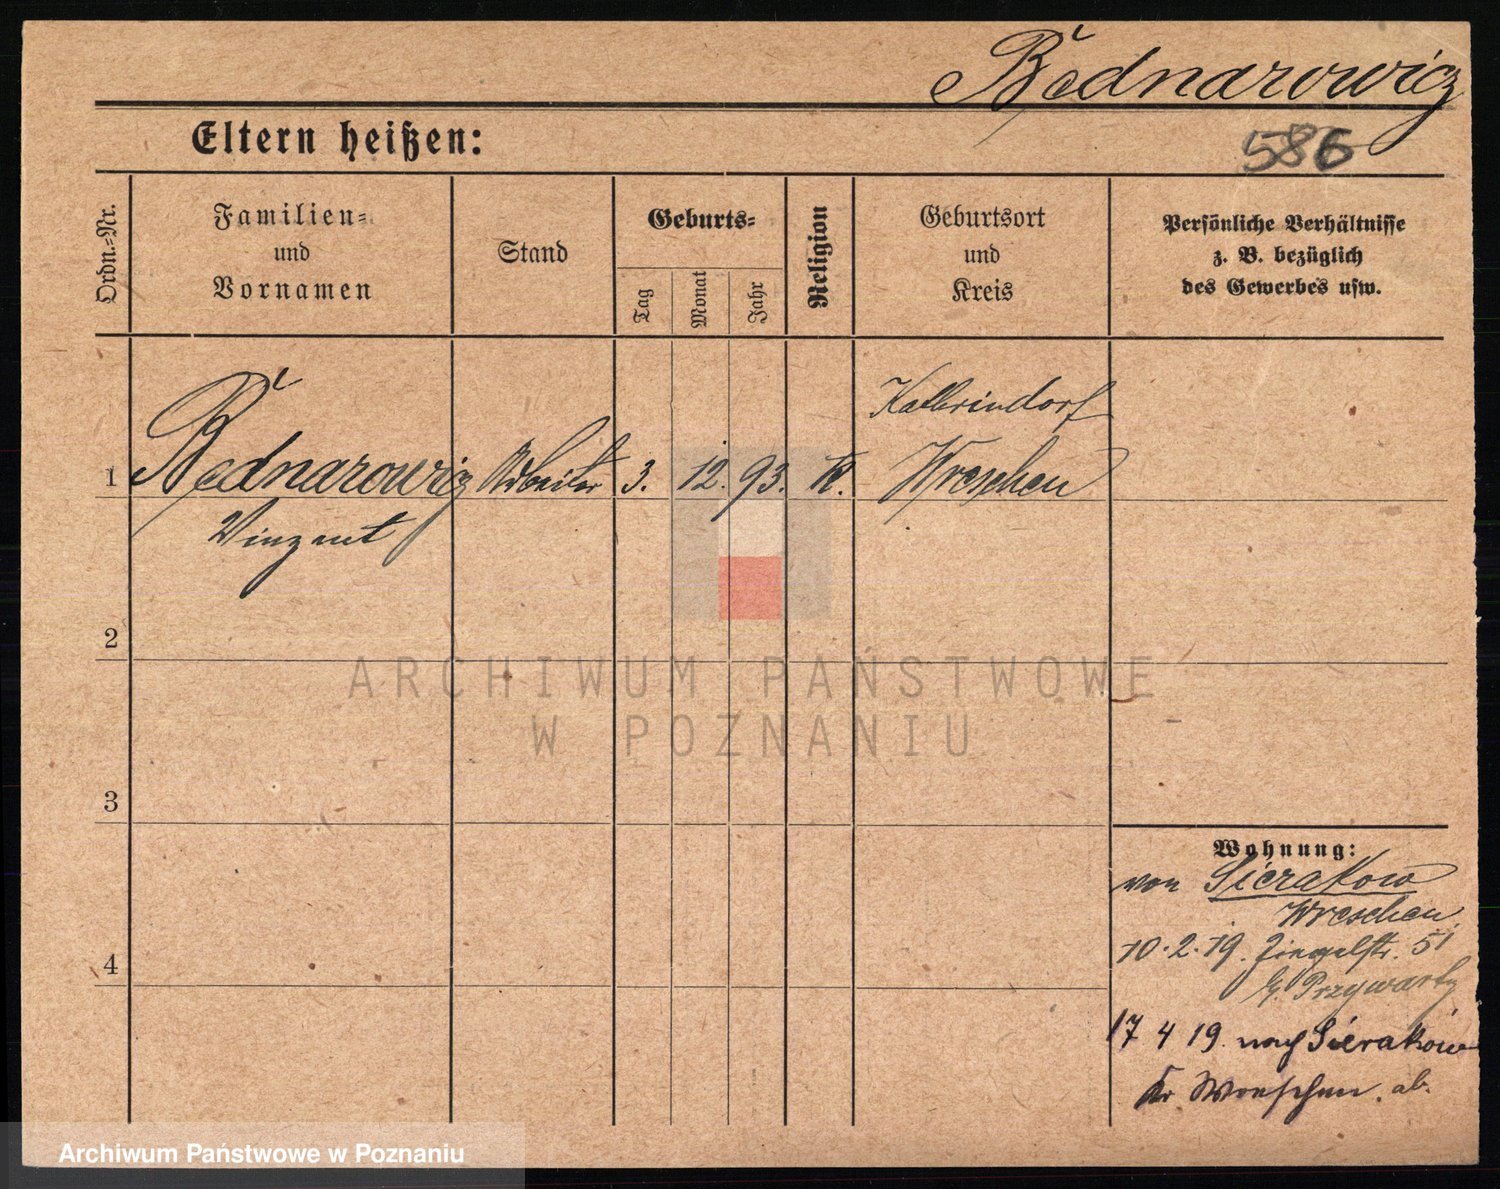 Bednarowicz
586
Eltern heißen:
Ordn.-Nr.
Familien-
und
Vornamen
Stand
Geburts-
Tag
Monat
Jahr
Religion
Geburtsort
und
Kreis
Persönliche Verhältnisse
z. B. bezüglich
des Gewerbes usw.
1 Bednarowicz Arbeiter 3. 12. 93. K. Kathrindorf
Wreschen
Vinzent
2
3
4
ARCHIWUM PAŃSTWOWE
W POZNANIU
Wohnung:
von Sierakow
Wreschen
10.2.19. Ziegelstr. 51
b/ Przywarty
17 4 19. nach Sierakow
Kr Wreschen. ab.
Archiwum Państwowe w Poznaniu